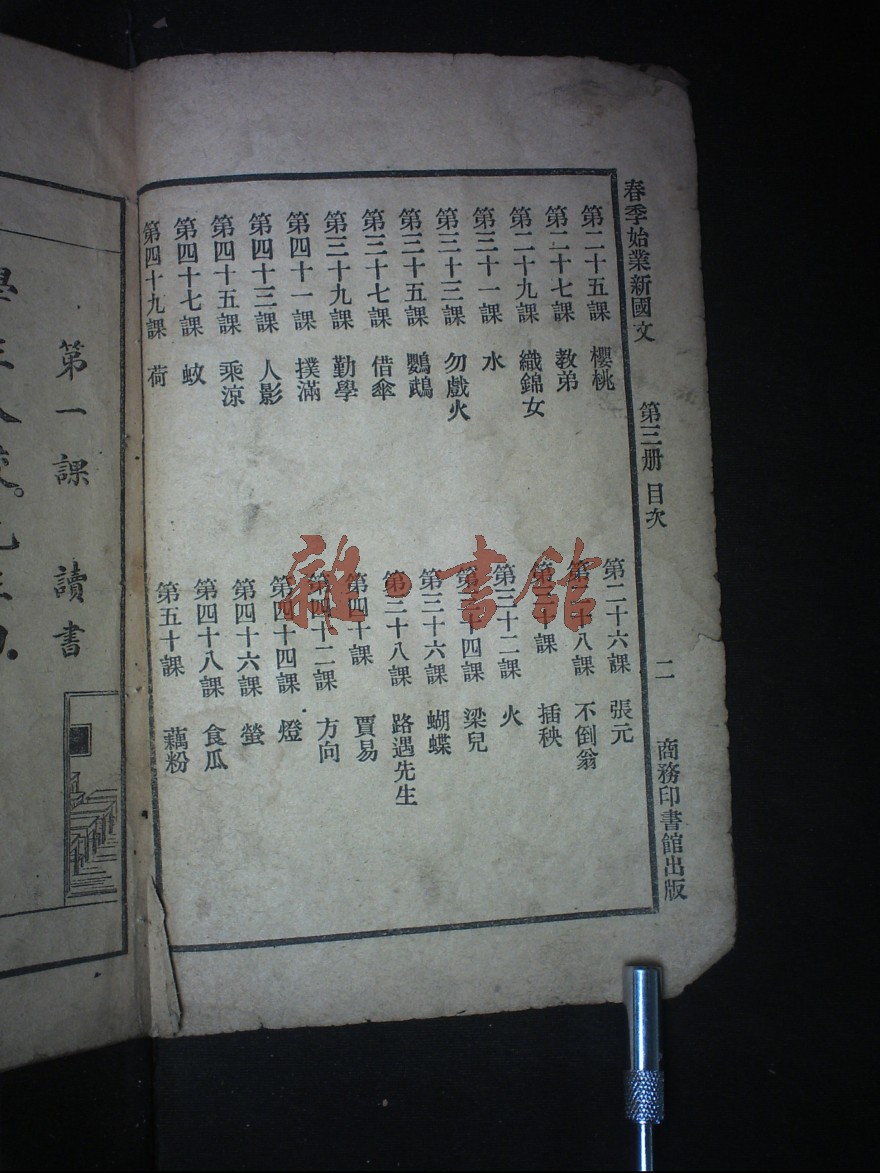 春季始業新國文 第三册 目次 二 商務印書館出版
第二十五課 櫻桃 第二十六課 張元
第二十七課 教弟 第二十八課 不倒翁
第二十九課 織錦女 第三十課 插秧
第三十一課 水 第三十二課 火
第三十三課 勿戲火 第三十四課 梁兒
第三十五課 鸚鵡 第三十六課 蝴蝶
第三十七課 借傘 第三十八課 路遇先生
第三十九課 勤學 第四十課 賈易
第四十一課 撲滿 第四十二課 方向
第四十三課 人影 第四十四課 燈
第四十五課 乘涼 第四十六課 螢
第四十七課 蚊 第四十八課 食瓜
第四十九課 荷 第五十課 藕粉
第一課 讀書
雜·書館